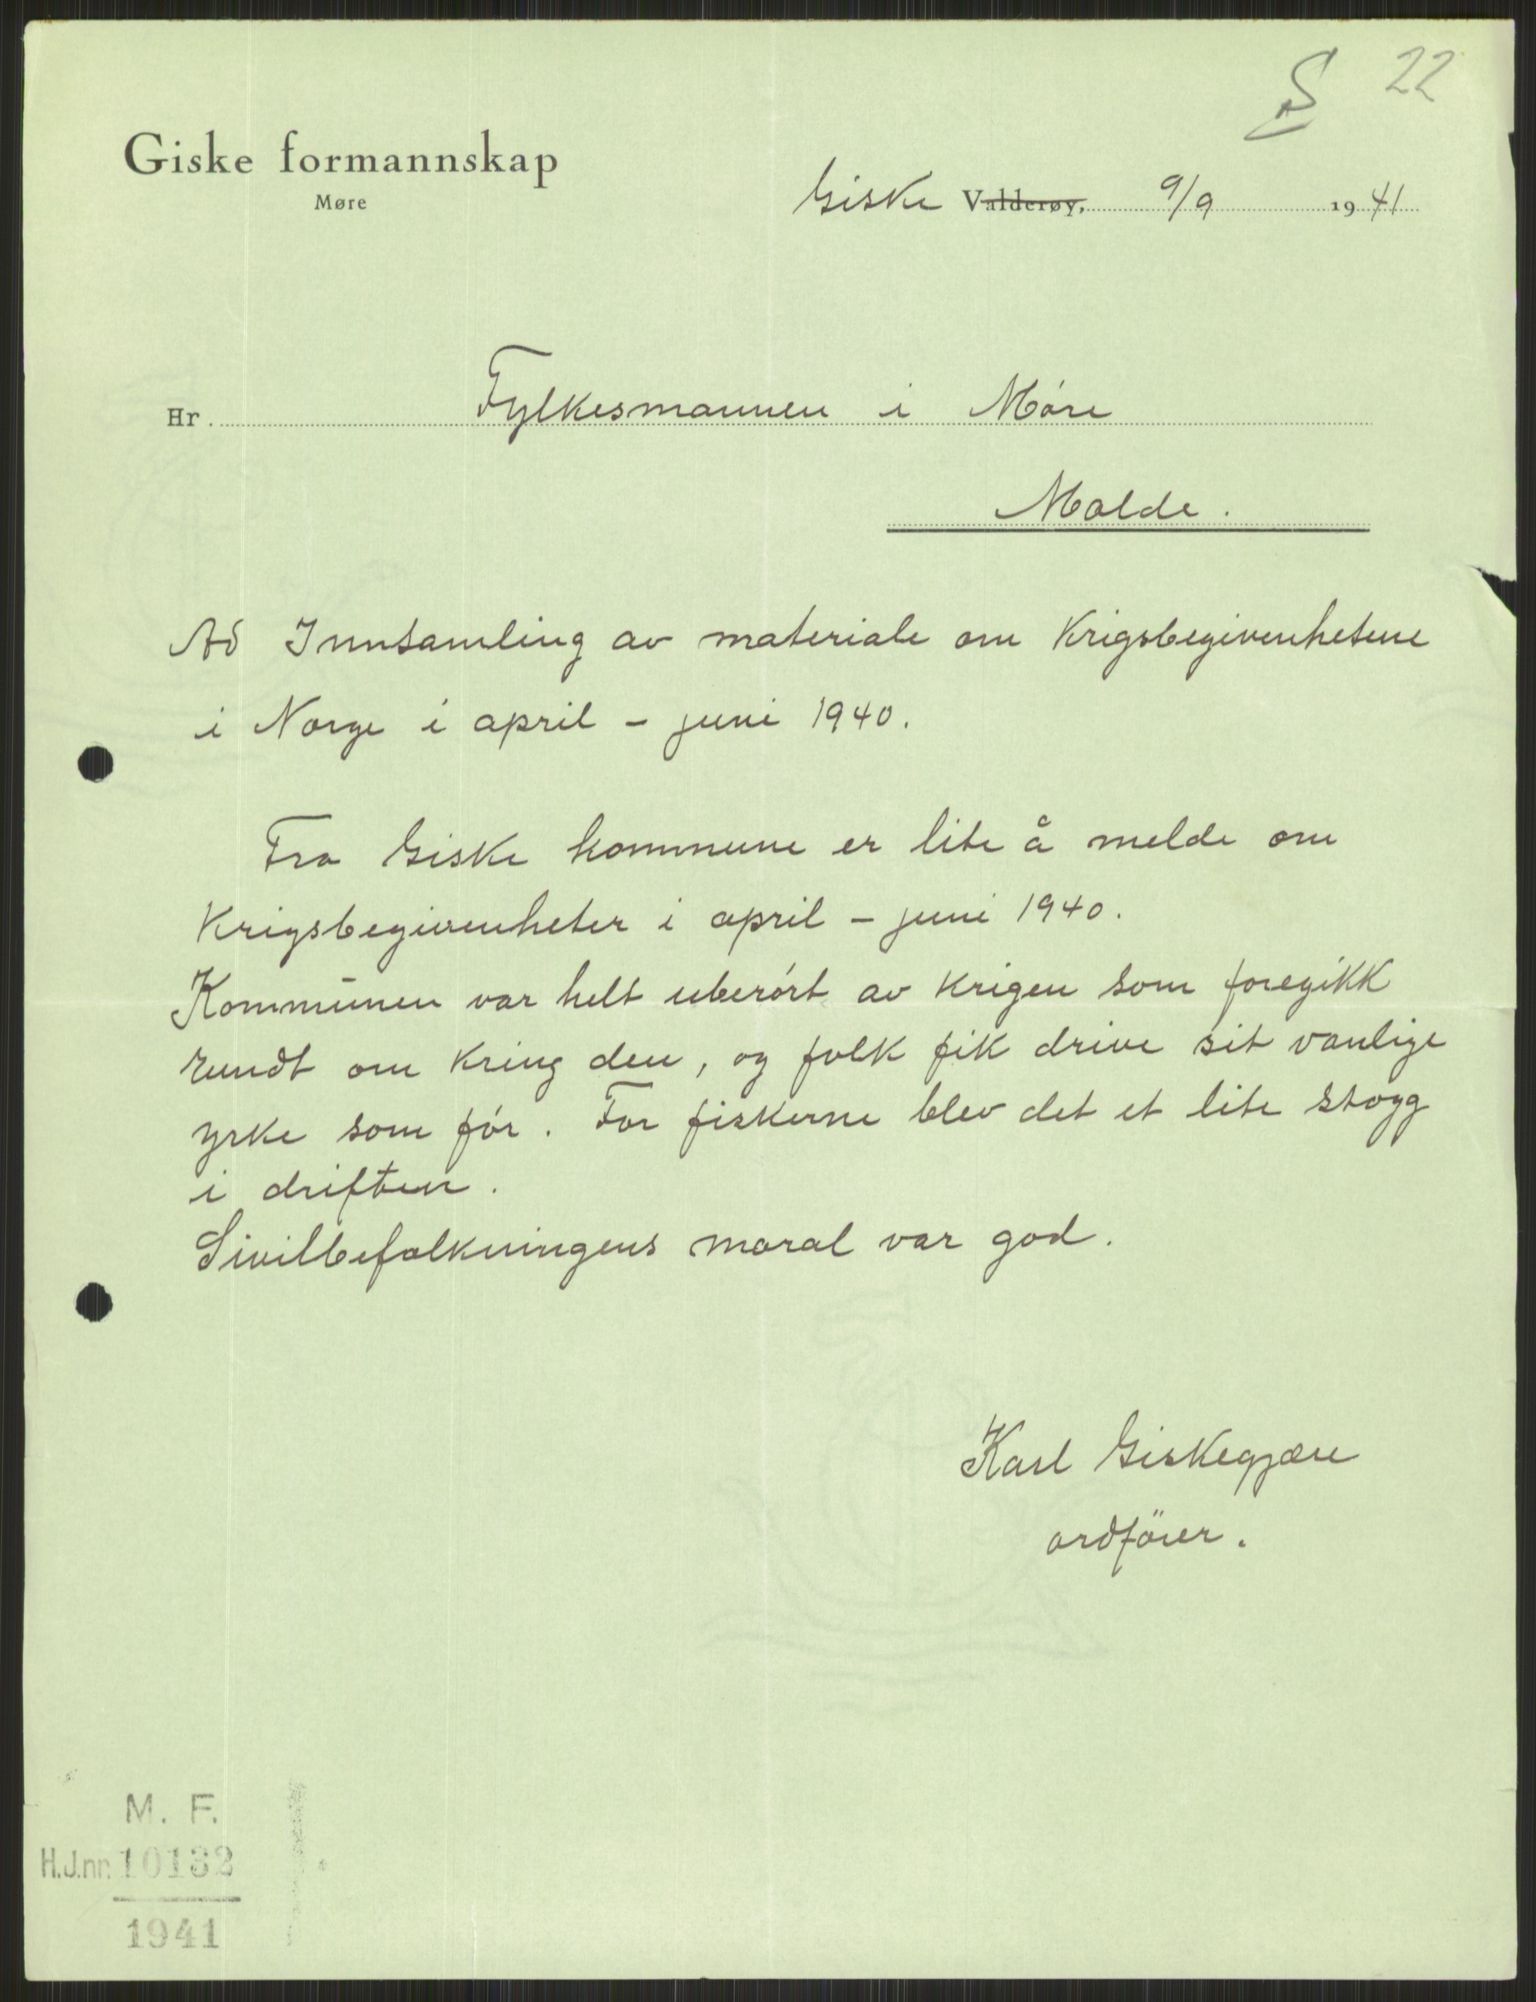 S 22
Giske formannskap
Møre
Giske Valderøy, 9/9 1941
Hr. Fylkesmannen i Møre
Molde.
Ad Innsamling av materiale om Krigsbegivenhetene
i Norge i april – juni 1940.
Fra Giske kommune er lite å melde om
Krigsbegivenheter i april – juni 1940.
Kommunen var helt uberørt av krigen som foregikk
rundt om kring den, og folk fik drive sit vanlige
yrke som før. For fiskerne blev det et lite stogg
i driften.
Sivilbefolkningens moral var god.
Karl Giskegjære
ordförer.
M. F.
H.J.nr. 10132
1941